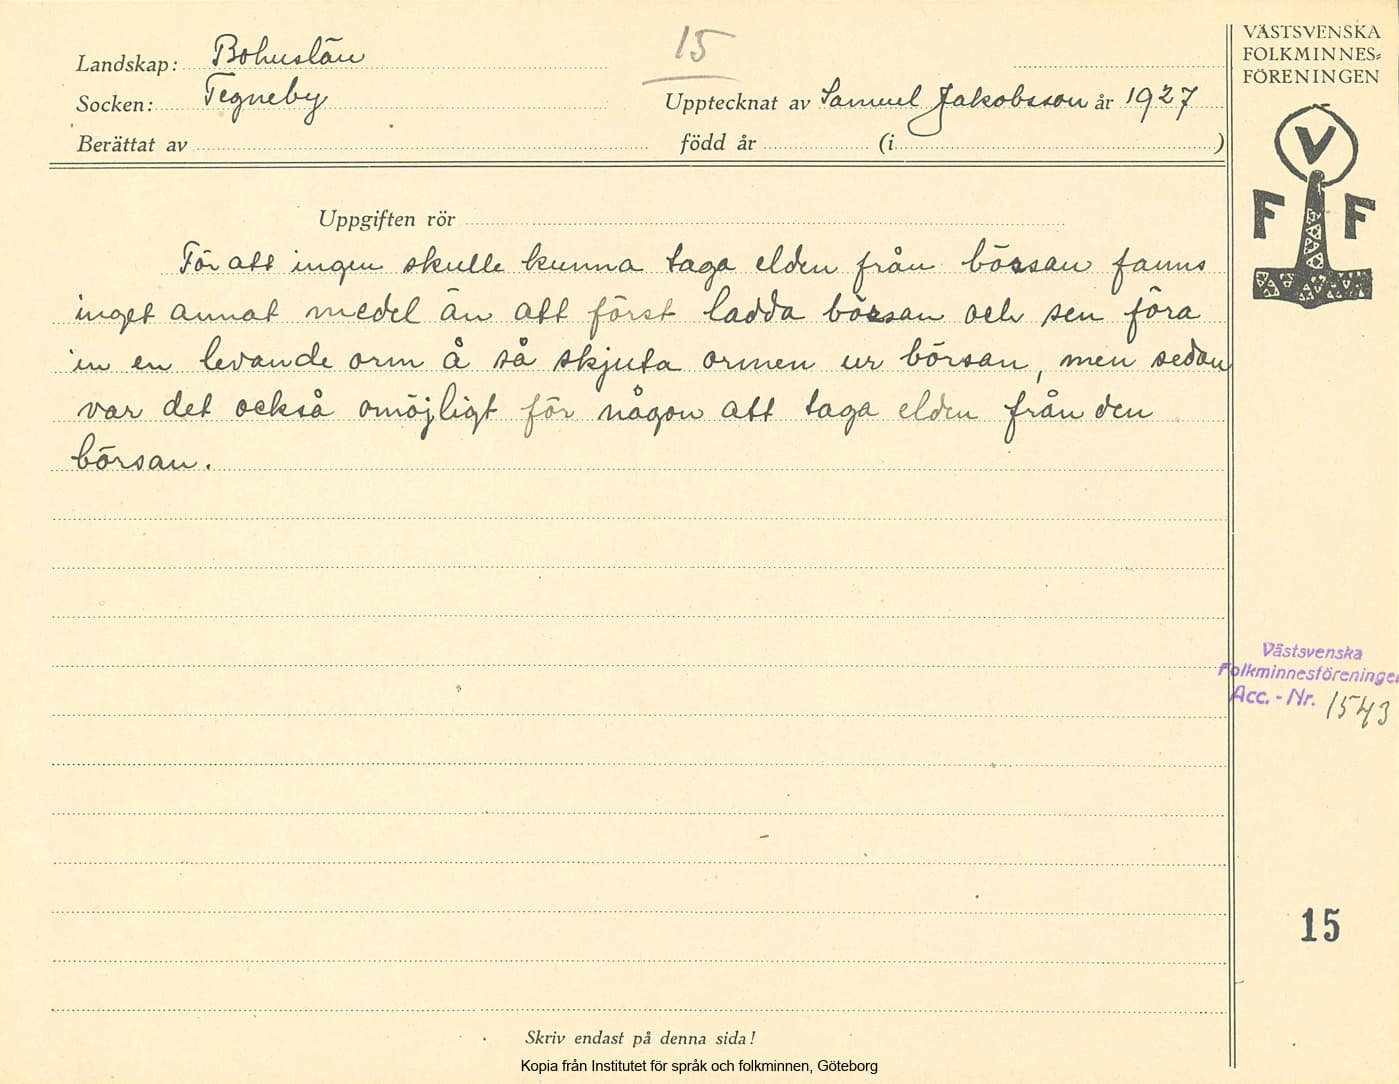 15
Landskap: Bohuslän
Socken: Tegneby
Upptecknat av Samuel Jakobsson år 1927
Berättat av
född år (i )
VÄSTSVENSKA
FOLKMINNES=
FÖRENINGEN
V
F F
Uppgiften rör
För att ingen skulle kunna taga elden från börsan fanns
inget annat medel än att först ladda börsan och sen föra
in en levande orm å så skjuta ormen ur börsan, men sedan
var det också omöjligt för någon att taga elden från den
börsan.
Västsvenska
Folkminnesföreningen
Acc. - Nr. 1543
15
Skriv endast på denna sida!
Kopia från Institutet för språk och folkminnen, Göteborg